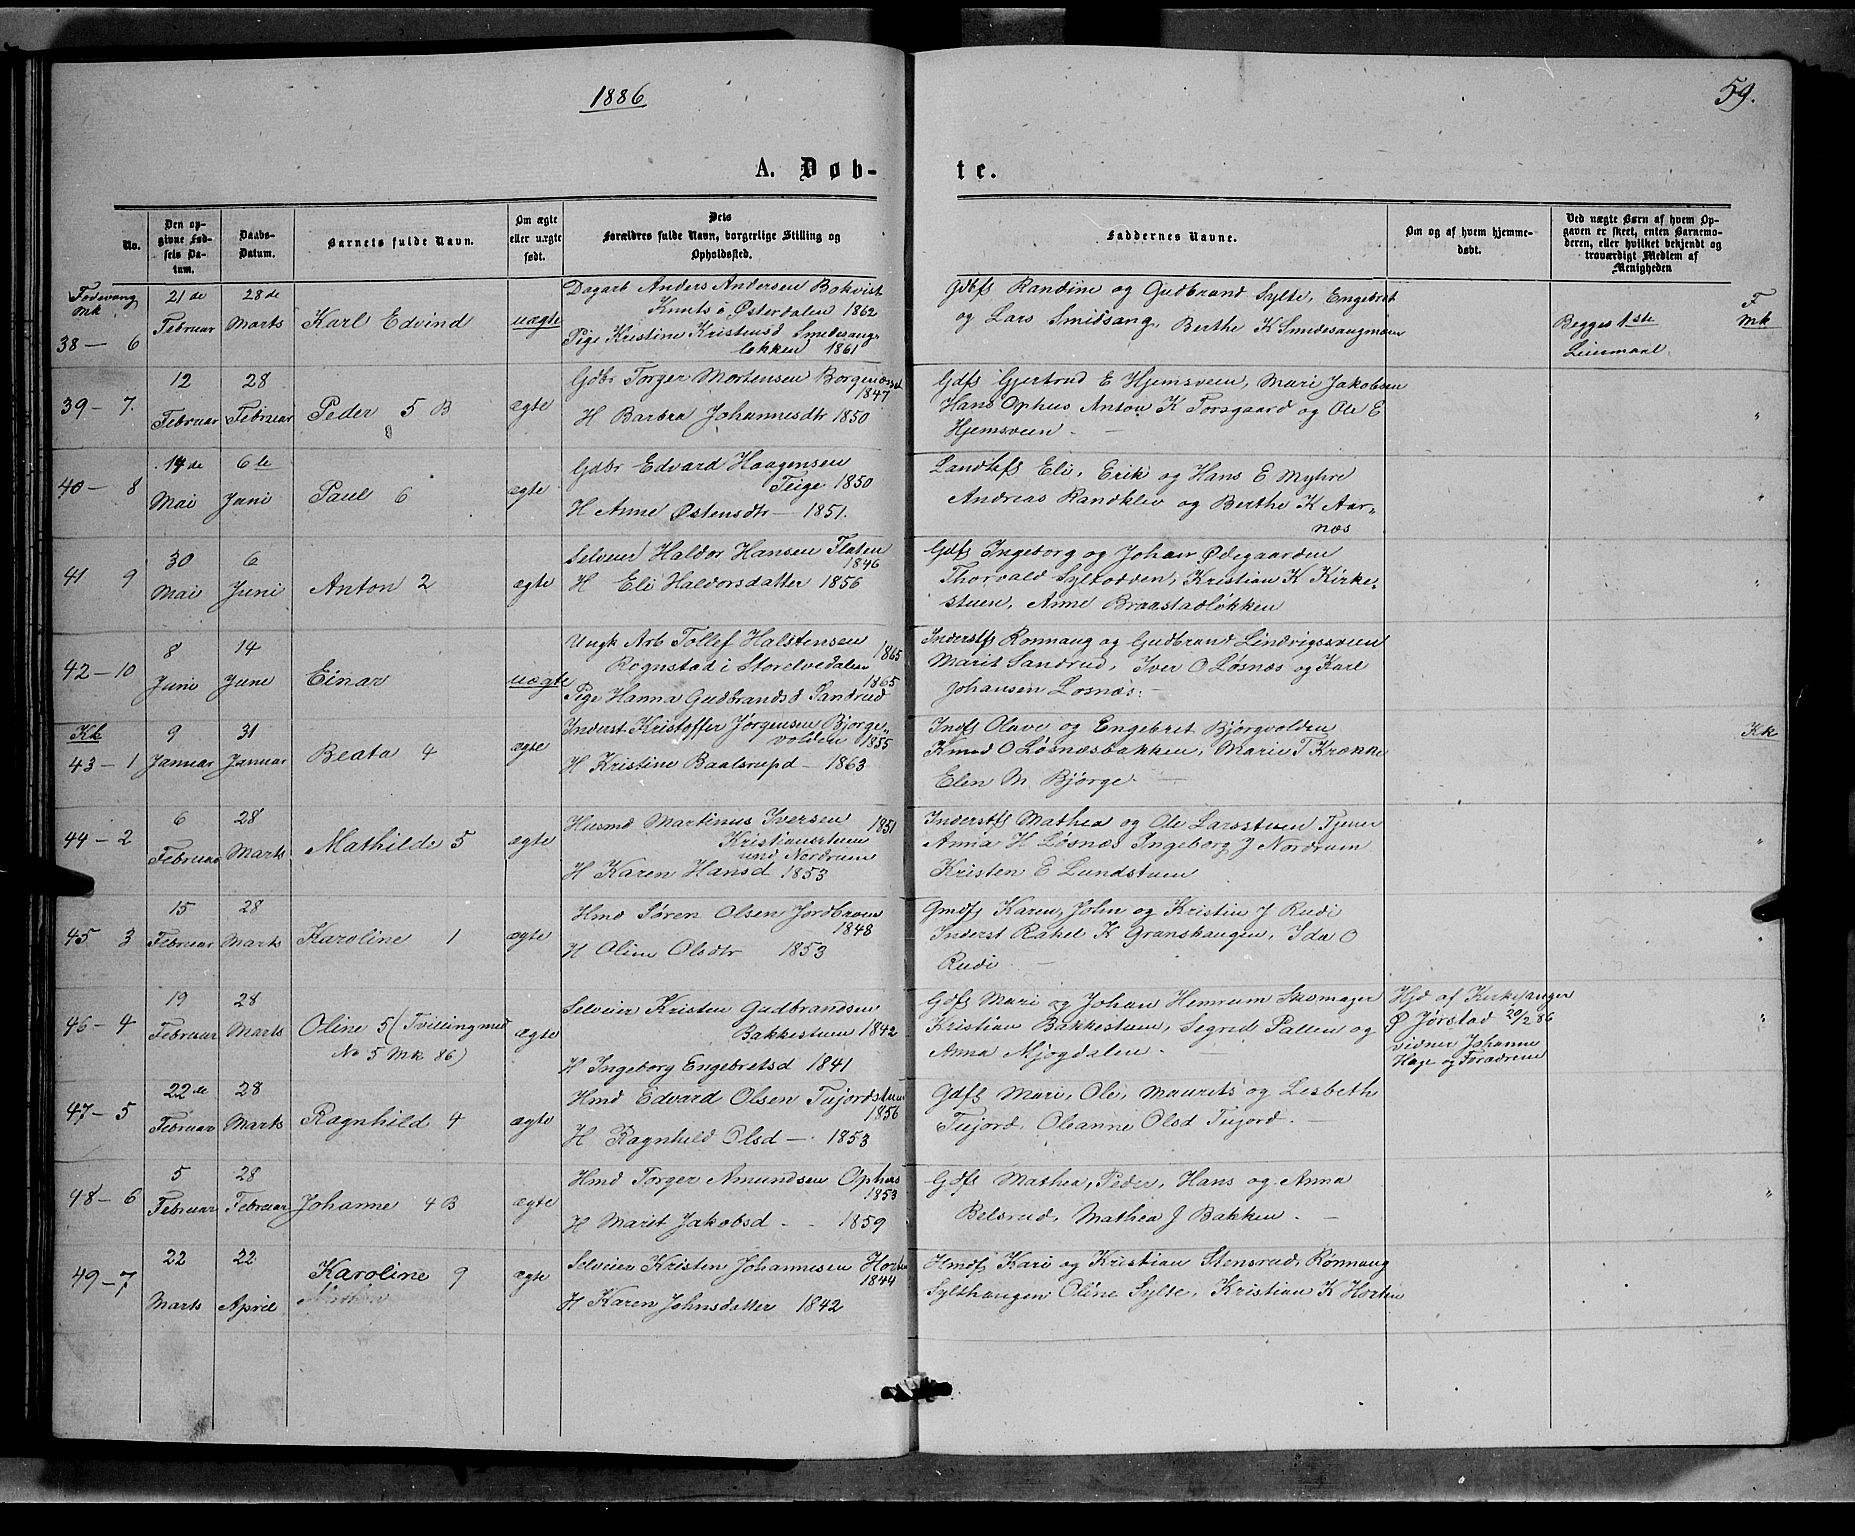 1886
59.
A. Døb-
te.
No.
Den opgivne Fødsels Datum.
Daabs-Datum.
Barnets fulde Navn.
Om ægte eller uægte født.
Dets Forældres fulde Navn, borgerlige Stilling og Opholdssted.
Faddernes Navne.
Om og af hvem hjemmedøbt.
Ved uægte Børn af hvem Opgaven er skeet, enten Barnemoderen, eller hvilket bekjendt og troværdigt Medlem af Menigheden
Fodvang
Mk
38 — 6
21de Februar
28de Marts
Karl Edvind
uægte
Dagarb Anders Andersen Bakvist
Knuts i Østerdalen 1862
Pige Kristine Kristensd Smedsrang-
løkken 1861
Gdbfs Randine og Gudbrand Sylte, Engebret
og Lars Smidsang, Berthe K Smedsangmoen
Begges 1ste
Leiermaal
F
Mk
39 — 7.
12 Februar
28 Februar
Peder 5 B
ægte
Gdbr Torger Mortensen Borgen
1847
H Barbra Johannesdtr 1850
Gdfs Gjertrud E Hjemsveen, Mari Jakobsen
Hans Ophus Anton K Forsgaard og Ole E
Hjemsveen. —
"
40 — 8
14de Mai
6te Juni
Paul 6
ægte
Gdbr Edvard Haagensen
Teige 1850
H Anne Østensdtr — 1851.
Landhfs Eli, Erik og Hans E Myhre
Andreas Randklev og Berthe K Aar-
næs
"
41 9
30 Mai
6 Juni
Anton 2
ægte
Selveier Haldor Hansen Flaten
1846
H Eli Haldorsdatter 1856
Gdfs Ingeborg og Johan Ødegaarden
Thorvald Sylteodden, Kristian K Kirke-
stuen, Anne Braastadløkken
"
42 — 10
8 Juni
14 June
Einar
uægte
Ungk Arb Tollef Halstensen 1865
Rognstad i Storelvedalen
1865
Pige Hanna Gudbrandsd Sandrud
Inderstfs Rønnaug og Gudbrand Lindvigsveen
Marit Sandrud, Iver O Løsnæs og Karl
Johansen Løsnæs. —
Kk
43 — 1
9 Januar
31 Januar
Beata 4
ægte
Inderst Kristoffer Jørgensen Bjørge-
volden 1855
H Kristine Baalsrupd — 1863
Indfs Olave og Engebret Bjørgvolden
Knud O Løsnæsbakken, Marie T Krække
Elen M. Bjørge —
Kk
44 — 2
6 Februar
28 Marts
Mathilde 5
ægte
Husmd Martinus Iversen 1851
Kristianstuen
und Nordrum
H Karen Hansd 1853
Inderstfs Mathea og Ole Larsstuen Tjener
Anna H Løsnæs Ingeborg J Nordrum
Kristen E Lundstuen
"
45 3
15 Februar
28 Marts
Karoline 1
ægte
Hmd Søren Olsen Jordbruen
1848
H Oline Olsdtr 1853
Gmdfs Karen, John og Kristin J Rudi
Inderst Rakel K Granshaugen, Ida O
Rudi —
"
46 — 4
19 Februar
28 Marts
Oline 5 (Tvilling med
No 5 Mk 86)
ægte
Selveier Kristen Gudbrandsen
Bakkestuen 1842
H Ingeborg Engebretsd 1841
Gdfs Mari og Johan Hemrum Skomager
Kristian Bakkestuen, Segred Pallen og
Anna Mjogdalen. —
Hjd af Kirkesanger
Ø Jørstad 20/2 86
vidner Johanne
Hage og Forædrene
"
47 — 5
22de Februar
28 Marts
Ragnhild 4
ægte
Hmd Edvard Olsen Tufordstuen
1856
H Ragnhild Olsd — 1853
Gdfs Mari, Ole, Maurits og Lesbeth
Tufjord, Oleanne Olsd Tufjord. —
48 — 6
5 Februar
28 Februar
Johanne 4 B
ægte
Hmd Torger Amundsen Ophus
1853
H Marit Jakobsd — 1859
Gdfs Mathea, Peder, Hans og Anna
Belsrud, Mathea J Bakken. —
"
49 — 7
22 Marts
22 April
Karoline 9
ægte
Selveier Kristen Johannesen Horten
1844
H Karen Johnsdatter 1842
Hmdfs Kari og Kristian Stensrud, Rønnaug
Sylthaugen Oline Sylte, Kristian K Horten